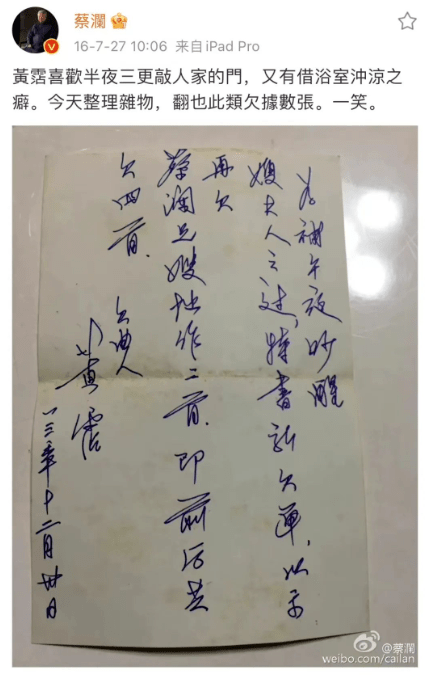 蔡瀾
16-7-27 10:06 来自iPad Pro
黃霑喜歡半夜三更敲人家的門，又有借浴室沖涼之
癖。今天整理雜物，翻也此類欠據數張。一笑。
为補午夜吵醒
嫂夫人之过，特書新欠單，以示
再欠
蔡瀾兄嫂拙作二首，即前后共
欠四首．
欠曲人
黄霑
十二月卅日
@蔡瀾
weibo.com/cailan